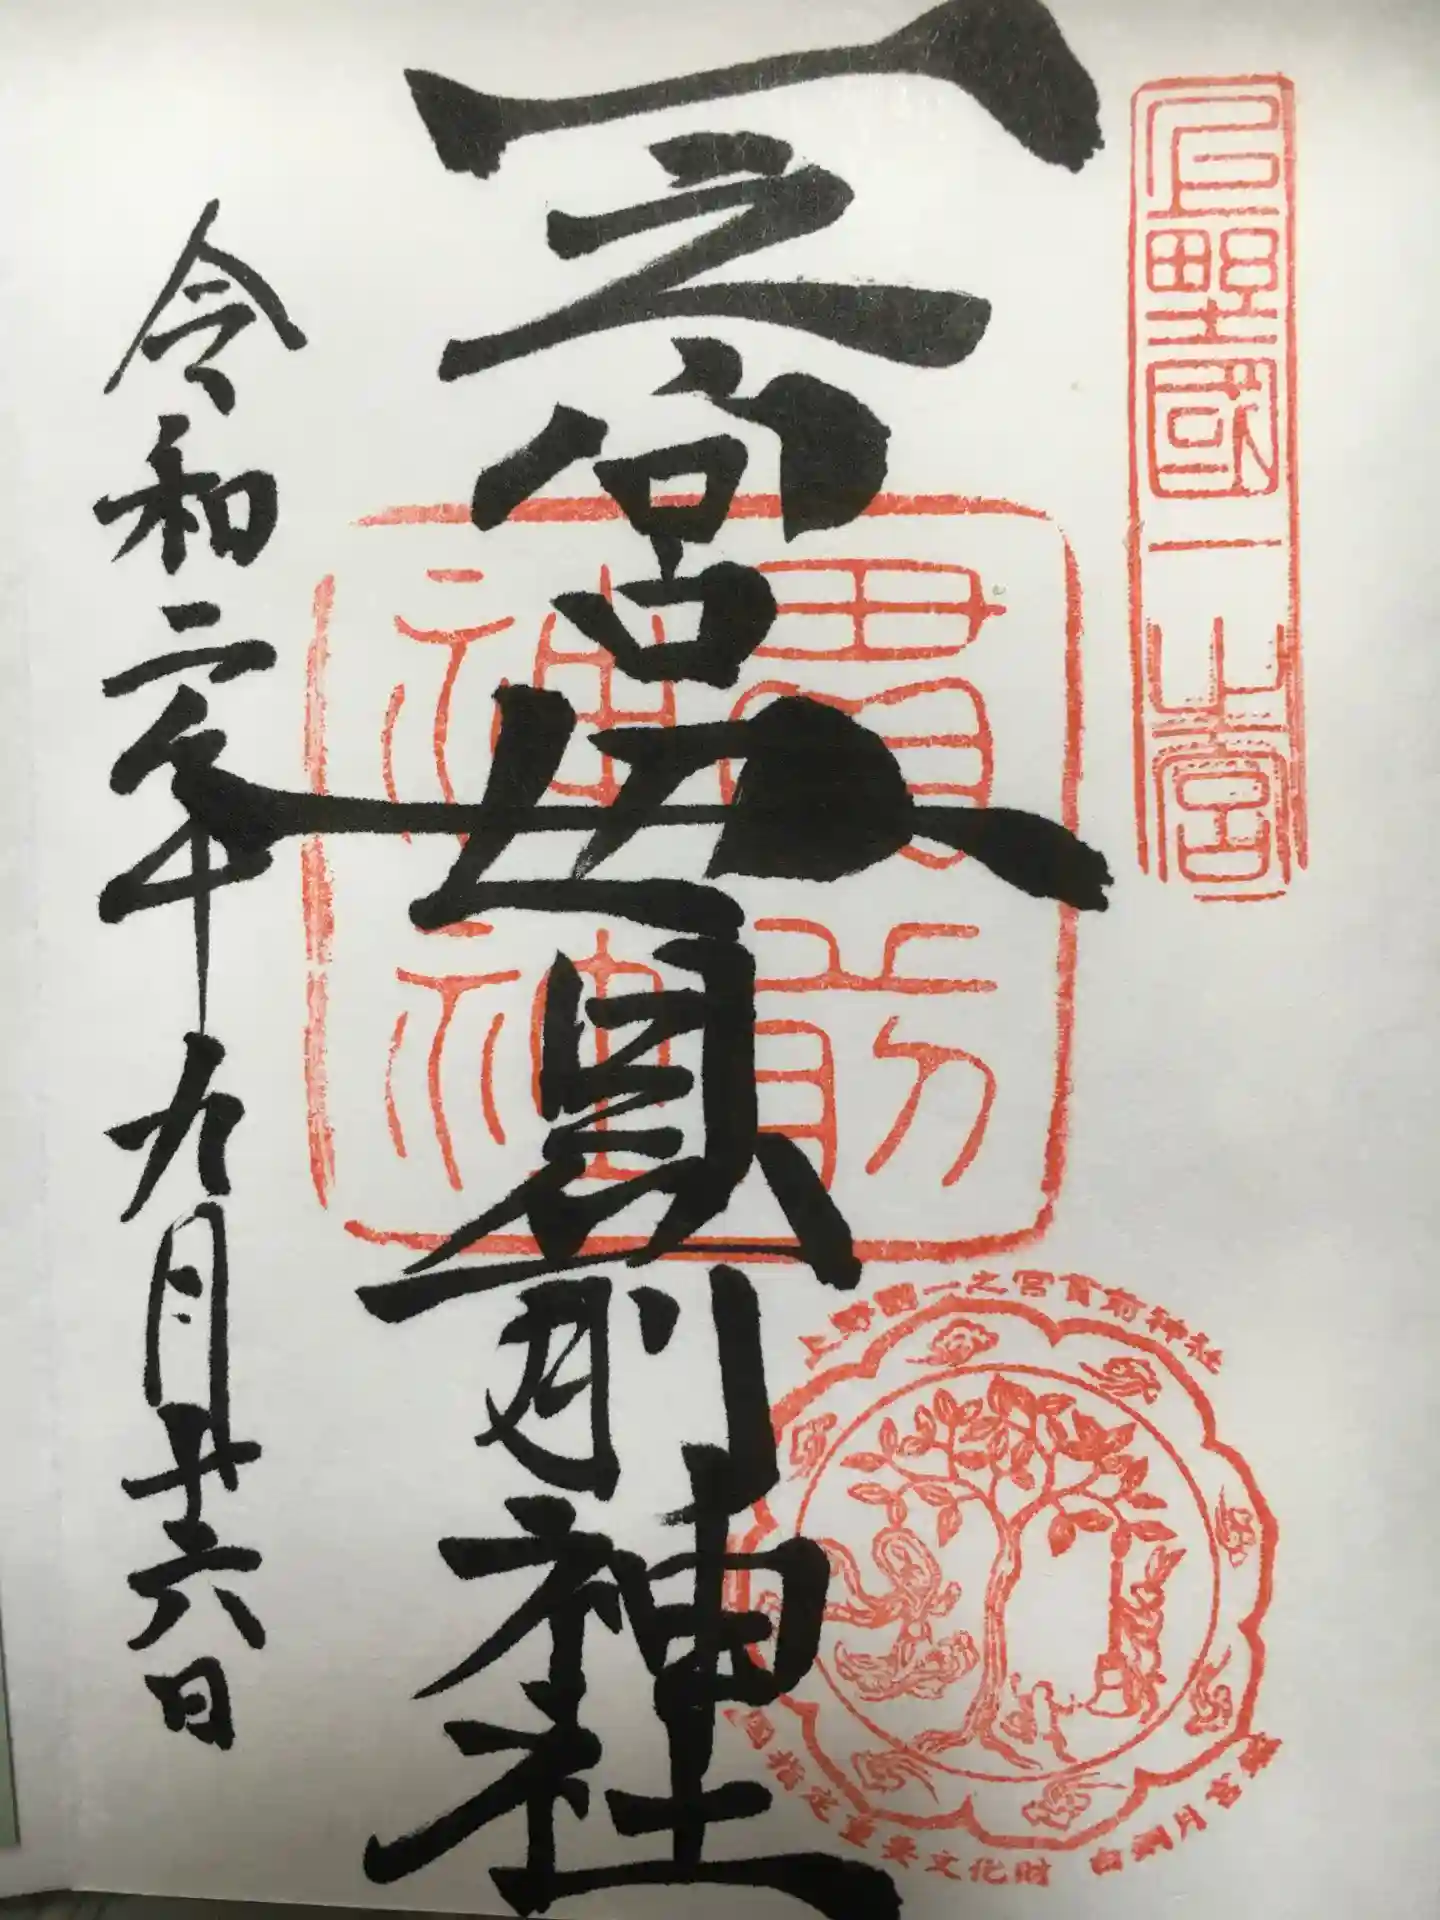 上野國一之宮
一之宮貫前神社
貫前神社
上野國一之宮貫前神社
国指定重要文化財 白銅月宮鑑
令和二年九月廿六日